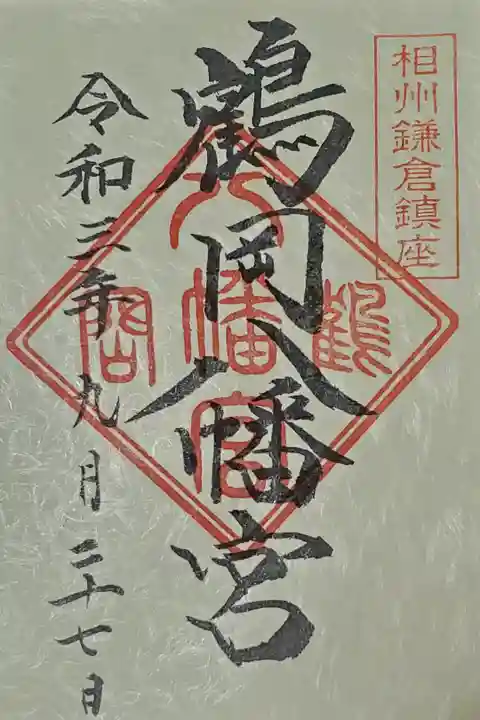 相州鎌倉鎮座
鶴岡八幡宮
八
鶴幡岡
宮
令和三年九月二十七日